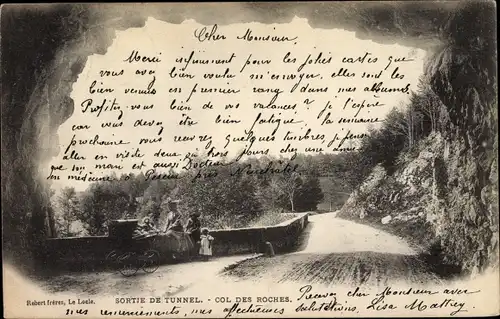 Cher Monsieur,
Merci infiniment pour les jolies cartes que
vous avez bien voulu m'envoyer, elles sont les
bien venues en premier rang dans mes albums.
Profitez-vous bien de vos vacances ? je l'espère
car vous devez être bien fatigué, la semaine
prochaine vous recevrez quelques timbres, je pense
aller en visite deux ou trois jours chez une amie
que son mari est aussi Docteur
en médecine à Neuchâtel
Robert frères, Le Locle.
SORTIE DE TUNNEL. - COL DES ROCHES.
Recevez cher Monsieur avec
mes remerciements, mes affectueuses salutations, Lisa Mattey